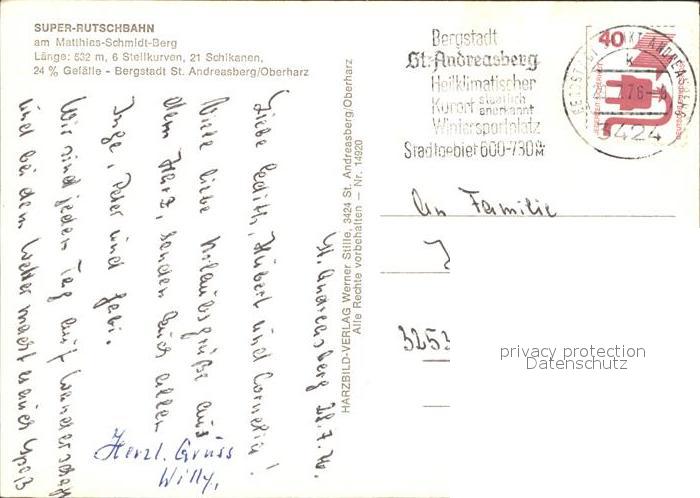 SUPER-RUTSCHBAHN
am Matthias-Schmidt-Berg
Länge: 532 m, 6 Steilkurven, 21 Schikanen,
24 % Gefälle - Bergstadt St. Andreasberg/Oberharz
Bergstadt
St. Andreasberg
Heilklimatischer
Kurort staatlich anerkannt
Wintersportplatz
Stadtgebiet 600-730 M
40
3424
HARZBILD-VERLAG Werner Stille, 3424 St. Andreasberg/Oberharz
Alle Rechte vorbehalten - Nr. 14920
St. Andreasberg 28.7.76.
Liebe Edith, Hubert und Cornelia!
Viele liebe Urlaubsgrüße aus
dem Harz, senden Euch allen
Inge, Peter und Gabi.
Wir sind jeden Tag auf Wanderschaft
und bei dem Wetter macht es auch Spaß
Herzl. Gruss
Willy,
An Familie
3253
privacy protection
Datenschutz